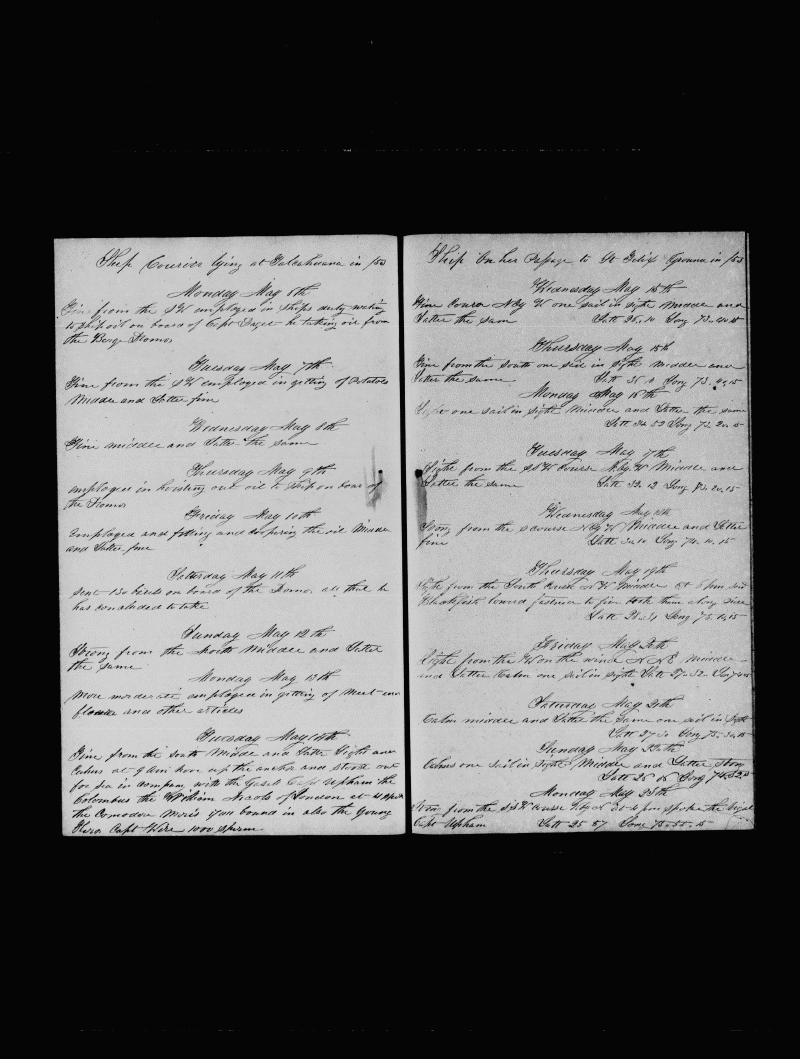 Ship Courier lying at Talcahuana in /53
Monday May 6th
Fine from the SW employed in ships duty
to ship oil on board of Capt he taking oil from
the Barge Homer
Tuesday May 7th
Fine from the SW employed in getting of Potatoes
Middle and Latter fine
Wednesday May 8th
Fine middle and Latter the same
Thursday May 9th
employed in hoisting out oil to ship on board of
the Homer
Friday May 10th
Employed and fitting and coopering the oil Middle
and Latter fine
Saturday May 11th
sent 130 on board of the Homer all that he
has concluded to take
Sunday May 12th
Strong from the North Middle and Latter
the same
Monday May 13th
More moderate employed in getting of meet and
flower and other articles
Tuesday May 14th
Fine from the South Middle and Latter Light and
Calms at 9 Am hove up the anchor and stood out
for sea in company with the Gazell Capt Upham the
Columbus the William of London at 4
the Comodore Morris bound in also the Young
Hero Capt 1000 sperm
Ship On her Passage to St Felix Ground in /53
Wednesday May 15th
Fine Course N by W one sail in sight Middle and
Latter the same Latt 35.10 Long 73.40.15
Thursday May 15th
Fine from the South one sail in sight Middle and
Latter the same Latt Long 73.
Monday May 16th
Light one sail in sight Middle and Latter the same
Latt 34.52 Long 73.20.15
Tuesday May 7th
Light from the SSW Course N by W Middle and
Latter the same Latt 32.12 Long 73.20.15
Wednesday May
Strong from the S course N by W Middle and Latter
fine Latt Long 74.10.15
Thursday May 19th
Light from the South Course N W Middle at 5 pm
Blackfish lowered fastened to five took them along side
Latt Long 75.
Friday May 20th
Light from the W on the wind N N E Middle
and Latter Calm one sail in sight Latt 27.52 Long
Saturday May
Calm middle and Latter the same one sail in sight
Latt 27. Long 75.
Sunday May 22th
Calms one sail in sight Middle and Latter Strong
Latt 26 Long 74.52.15
Monday May 23th
from the SSW Course N by W at 4 pm spoke the
Capt Upham Latt 25 57 Long 75.55.15